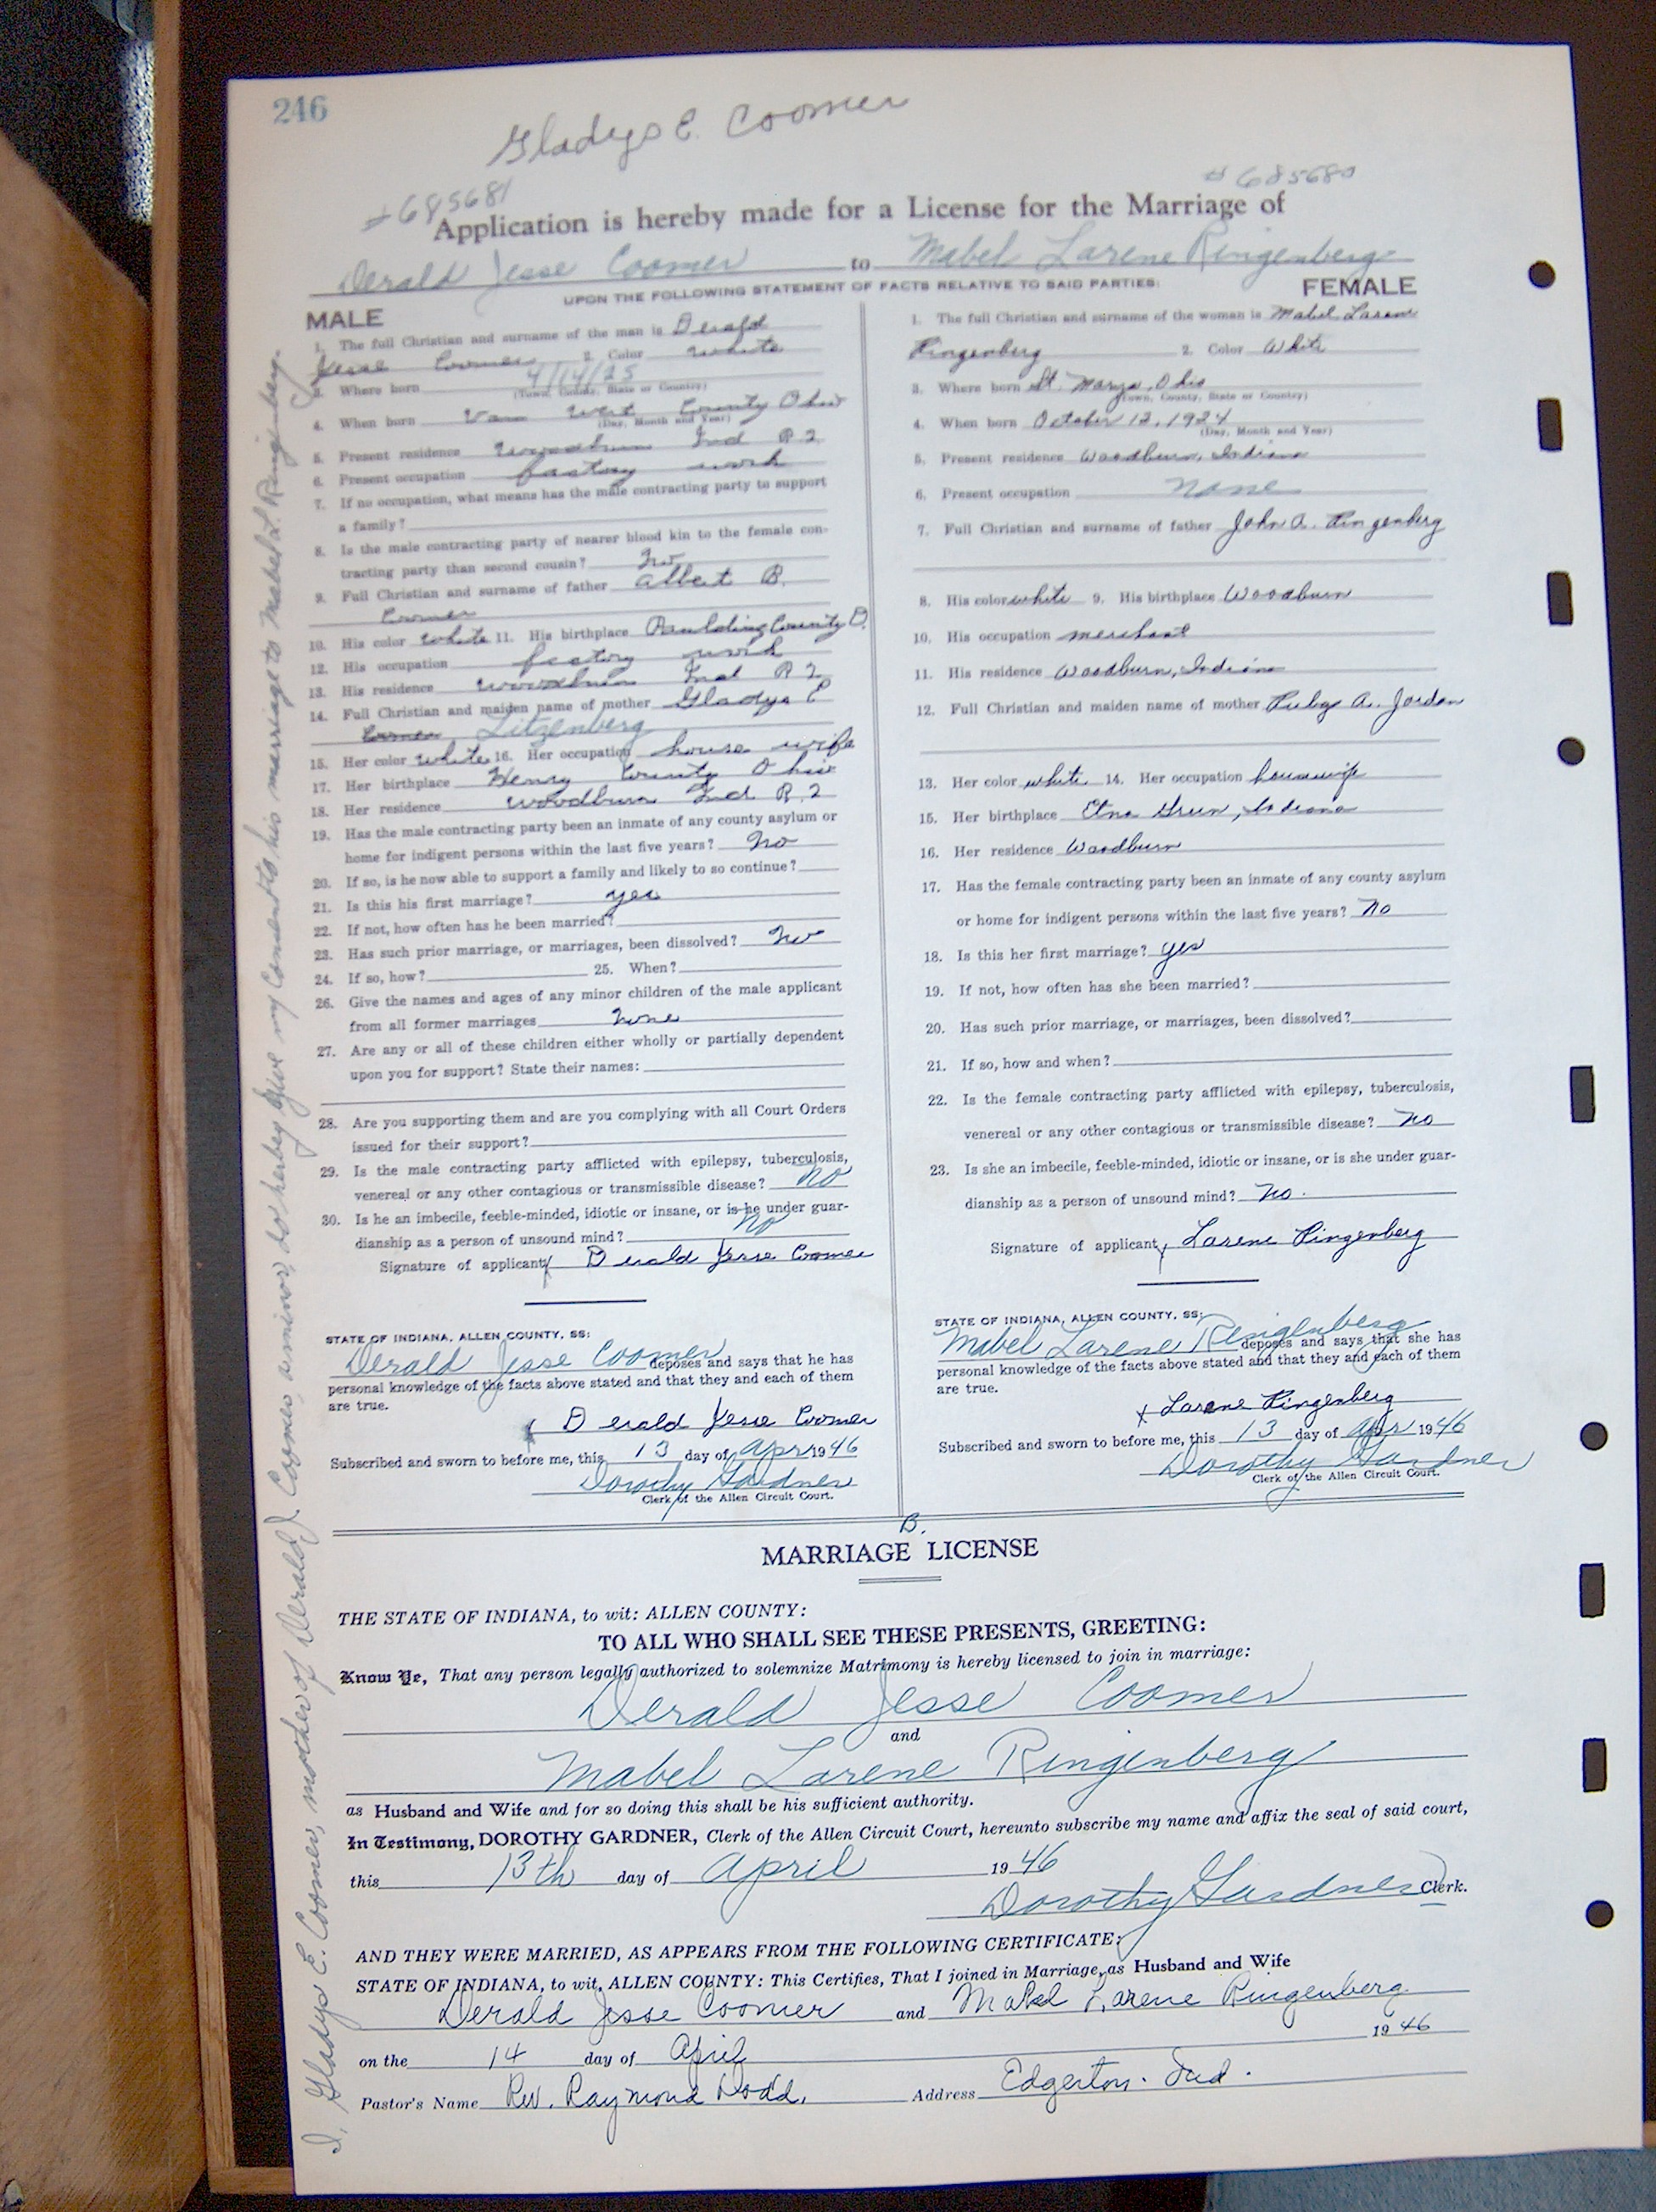 246
Gladys E. Coomer
#685681
#685680
Application is hereby made for a License for the Marriage of
Derald Jesse Coomer to Mabel Larene Ringenberg
UPON THE FOLLOWING STATEMENT OF FACTS RELATIVE TO SAID PARTIES:
MALE
1. The full Christian and surname of the man is Derald
Jesse Coomer 2. Color White
3. Where born 4/14/25
(Town, County, State or Country)
4. When born Van Wert County Ohio
(Day, Month and Year)
5. Present residence Woodburn Ind R 2
6. Present occupation factory work
7. If no occupation, what means has the male contracting party to support
a family?
8. Is the male contracting party of nearer blood kin to the female con-
tracting party than second cousin? No
9. Full Christian and surname of father Albert B.
Coomer
10. His color white 11. His birthplace Paulding County O.
12. His occupation factory work
13. His residence Woodburn Ind R 2
14. Full Christian and maiden name of mother Gladys E
Coomer Litzenberg
15. Her color white 16. Her occupation house wife
17. Her birthplace Henry County Ohio
18. Her residence Woodburn Ind R. 2
19. Has the male contracting party been an inmate of any county asylum or
home for indigent persons within the last five years? No
20. If so, is he now able to support a family and likely to so continue?
21. Is this his first marriage? yes
22. If not, how often has he been married?
23. Has such prior marriage, or marriages, been dissolved? No
24. If so, how? 25. When?
26. Give the names and ages of any minor children of the male applicant
from all former marriages None
27. Are any or all of these children either wholly or partially dependent
upon you for support? State their names:
28. Are you supporting them and are you complying with all Court Orders
issued for their support?
29. Is the male contracting party afflicted with epilepsy, tuberculosis,
venereal or any other contagious or transmissible disease? No
30. Is he an imbecile, feeble-minded, idiotic or insane, or is he under guar-
dianship as a person of unsound mind? No
Signature of applicant x Derald Jesse Coomer
STATE OF INDIANA, ALLEN COUNTY, SS:
Derald Jesse Coomer deposes and says that he has
personal knowledge of the facts above stated and that they and each of them
are true.
x Derald Jesse Coomer
Subscribed and sworn to before me, this 13 day of Apr 1946
Dorothy Gardner
Clerk of the Allen Circuit Court.
FEMALE
1. The full Christian and surname of the woman is Mabel Larene
Ringenberg 2. Color White
3. Where born St. Marys, Ohio
(Town, County, State or Country)
4. When born October 12, 1924
(Day, Month and Year)
5. Present residence Woodburn, Indiana
6. Present occupation None
7. Full Christian and surname of father John A. Ringenberg
8. His color white 9. His birthplace Woodburn
10. His occupation merchant
11. His residence Woodburn, Indiana
12. Full Christian and maiden name of mother Ruby A. Jordan
13. Her color white 14. Her occupation housewife
15. Her birthplace Etna Green, Indiana
16. Her residence Woodburn
17. Has the female contracting party been an inmate of any county asylum
or home for indigent persons within the last five years? No
18. Is this her first marriage? yes
19. If not, how often has she been married?
20. Has such prior marriage, or marriages, been dissolved?
21. If so, how and when?
22. Is the female contracting party afflicted with epilepsy, tuberculosis,
venereal or any other contagious or transmissible disease? No
23. Is she an imbecile, feeble-minded, idiotic or insane, or is she under guar-
dianship as a person of unsound mind? No.
Signature of applicant x Larene Ringenberg
STATE OF INDIANA, ALLEN COUNTY, SS:
Mabel Larene Ringenberg deposes and says that she has
personal knowledge of the facts above stated and that they and each of them
are true.
x Larene Ringenberg
Subscribed and sworn to before me, this 13 day of Apr 1946
Dorothy Gardner
Clerk of the Allen Circuit Court.
B.
MARRIAGE LICENSE
THE STATE OF INDIANA, to wit: ALLEN COUNTY:
TO ALL WHO SHALL SEE THESE PRESENTS, GREETING:
Know Ye, That any person legally authorized to solemnize Matrimony is hereby licensed to join in marriage:
Derald Jesse Coomer
and
Mabel Larene Ringenberg
as Husband and Wife and for so doing this shall be his sufficient authority.
In Testimony, DOROTHY GARDNER, Clerk of the Allen Circuit Court, hereunto subscribe my name and affix the seal of said court,
this 13th day of April 1946
Dorothy Gardner Clerk.
AND THEY WERE MARRIED, AS APPEARS FROM THE FOLLOWING CERTIFICATE:
STATE OF INDIANA, to wit, ALLEN COUNTY: This Certifies, That I joined in Marriage, as Husband and Wife
Derald Jesse Coomer and Mabel Larene Ringenberg
on the 14 day of April 1946
Pastor's Name Rev. Raymond Dodd. Address Edgerton. Ind.
I, Gladys E. Coomer, mother of Derald J. Coomer, a minor, do hereby give my consent to his marriage to Mabel L. Ringenberg.